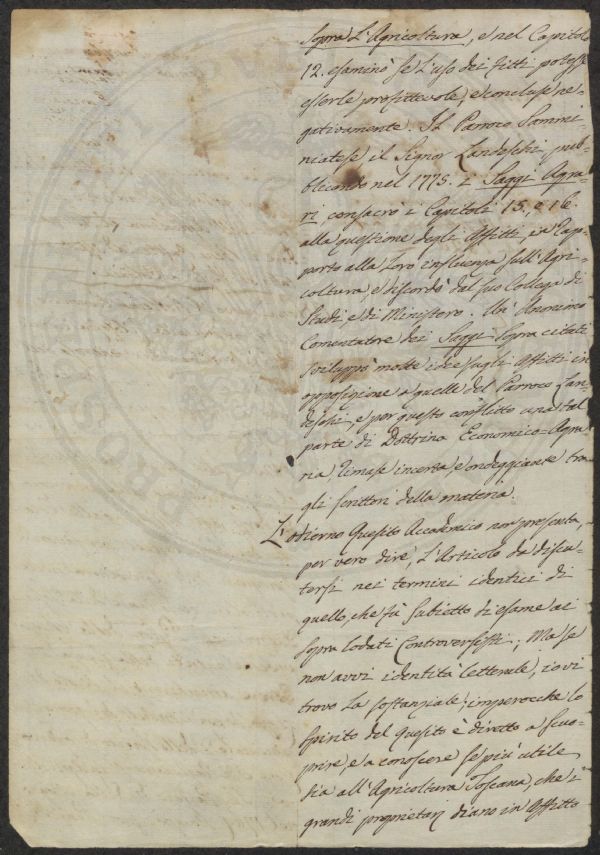 Sopra L'Agricoltura, e nel Capitolo
12. esaminò se L'uso dei fitti potesse
esserle profittevole, e concluse ne-
gativamente. Il Parroco Sammi-
niatese il Signor Landeschi pub-
blicando nel 1775. i Saggi Agra-
rj consacrò i Capitoli 15., e 16.
alla questione degli Affitti, in Rap-
porto alla Loro influenza sull'Agri-
coltura, e discordò dal suo Collega di
Studi, e di Ministero. Un Anonimo
Comentatore dei Saggi sopra citati
sviluppò molte idee sugli Affitti in
opposizione a quelle del Parroco Lan-
deschi, e per questo conflitto una tal
parte di Dottrina Economico-Agra-
ria, Rimase incerta, e ondeggiante tra
gli scrittori della materia.
L'odierno Quesito Accademico non presenta,
per vero dire, L'Articolo da discu-
tersi nei termini identici di
quello, che fù subietto di esame ai
sopra lodati Controversisti; Ma se
non avvi identità letterale, io vi
trovo La sostanziale; imperocche lo
spirito del Quesito è diretto a scuo-
prire, e a conoscere se più utile
sia all'Agricoltura Toscana, che i
grandi proprietarj diano in Affitto